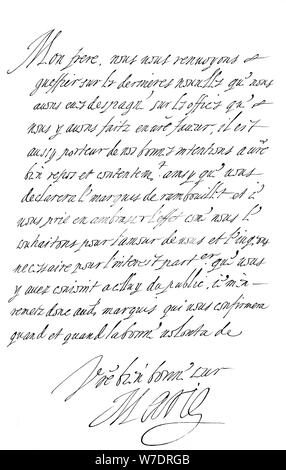 Mon frere, nous vous renvoyons
guessier sur les dernieres nouvelles qu nous
avons eues despagne sur les offices qu
nous y avons faitz en vre faveur, il est
aussy porteur de noz bonnes intentions a vre
bien repos et contentemt ainsy qu vous
declarera l marquis de rambouillet et
vous prie en embrasser l'efet com nous l
souhaitons pour l'amour de nous et l jugeons
necissaire pour l'interest parter qu vous
y avez conioint a celluy du public, 
remetz donc audt marquis qui vous confirmera
quand et quand la bonne volonte de
Vre bien bonne sur
Marie
alamy
www.alamy.com
Image ID: W7DRGB